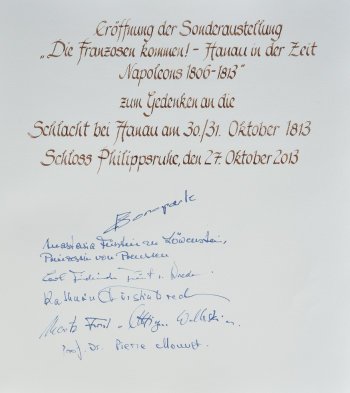 Eröffnung der Sonderausstellung
„Die Franzosen kommen! - Hanau in der Zeit
Napoleons 1806-1813“
zum Gedenken an die
Schlacht bei Hanau am 30./31. Oktober 1813
Schloss Philippsruhe, den 27. Oktober 2013
Bonaparte
Anastasia Fürstin zu Löwenstein,
Prinzessin von Preussen
Carl Friedrich Fürst v. Wrede
Katharina Fürstin Wrede
Moritz Fürst
Prof. Dr. Pierre